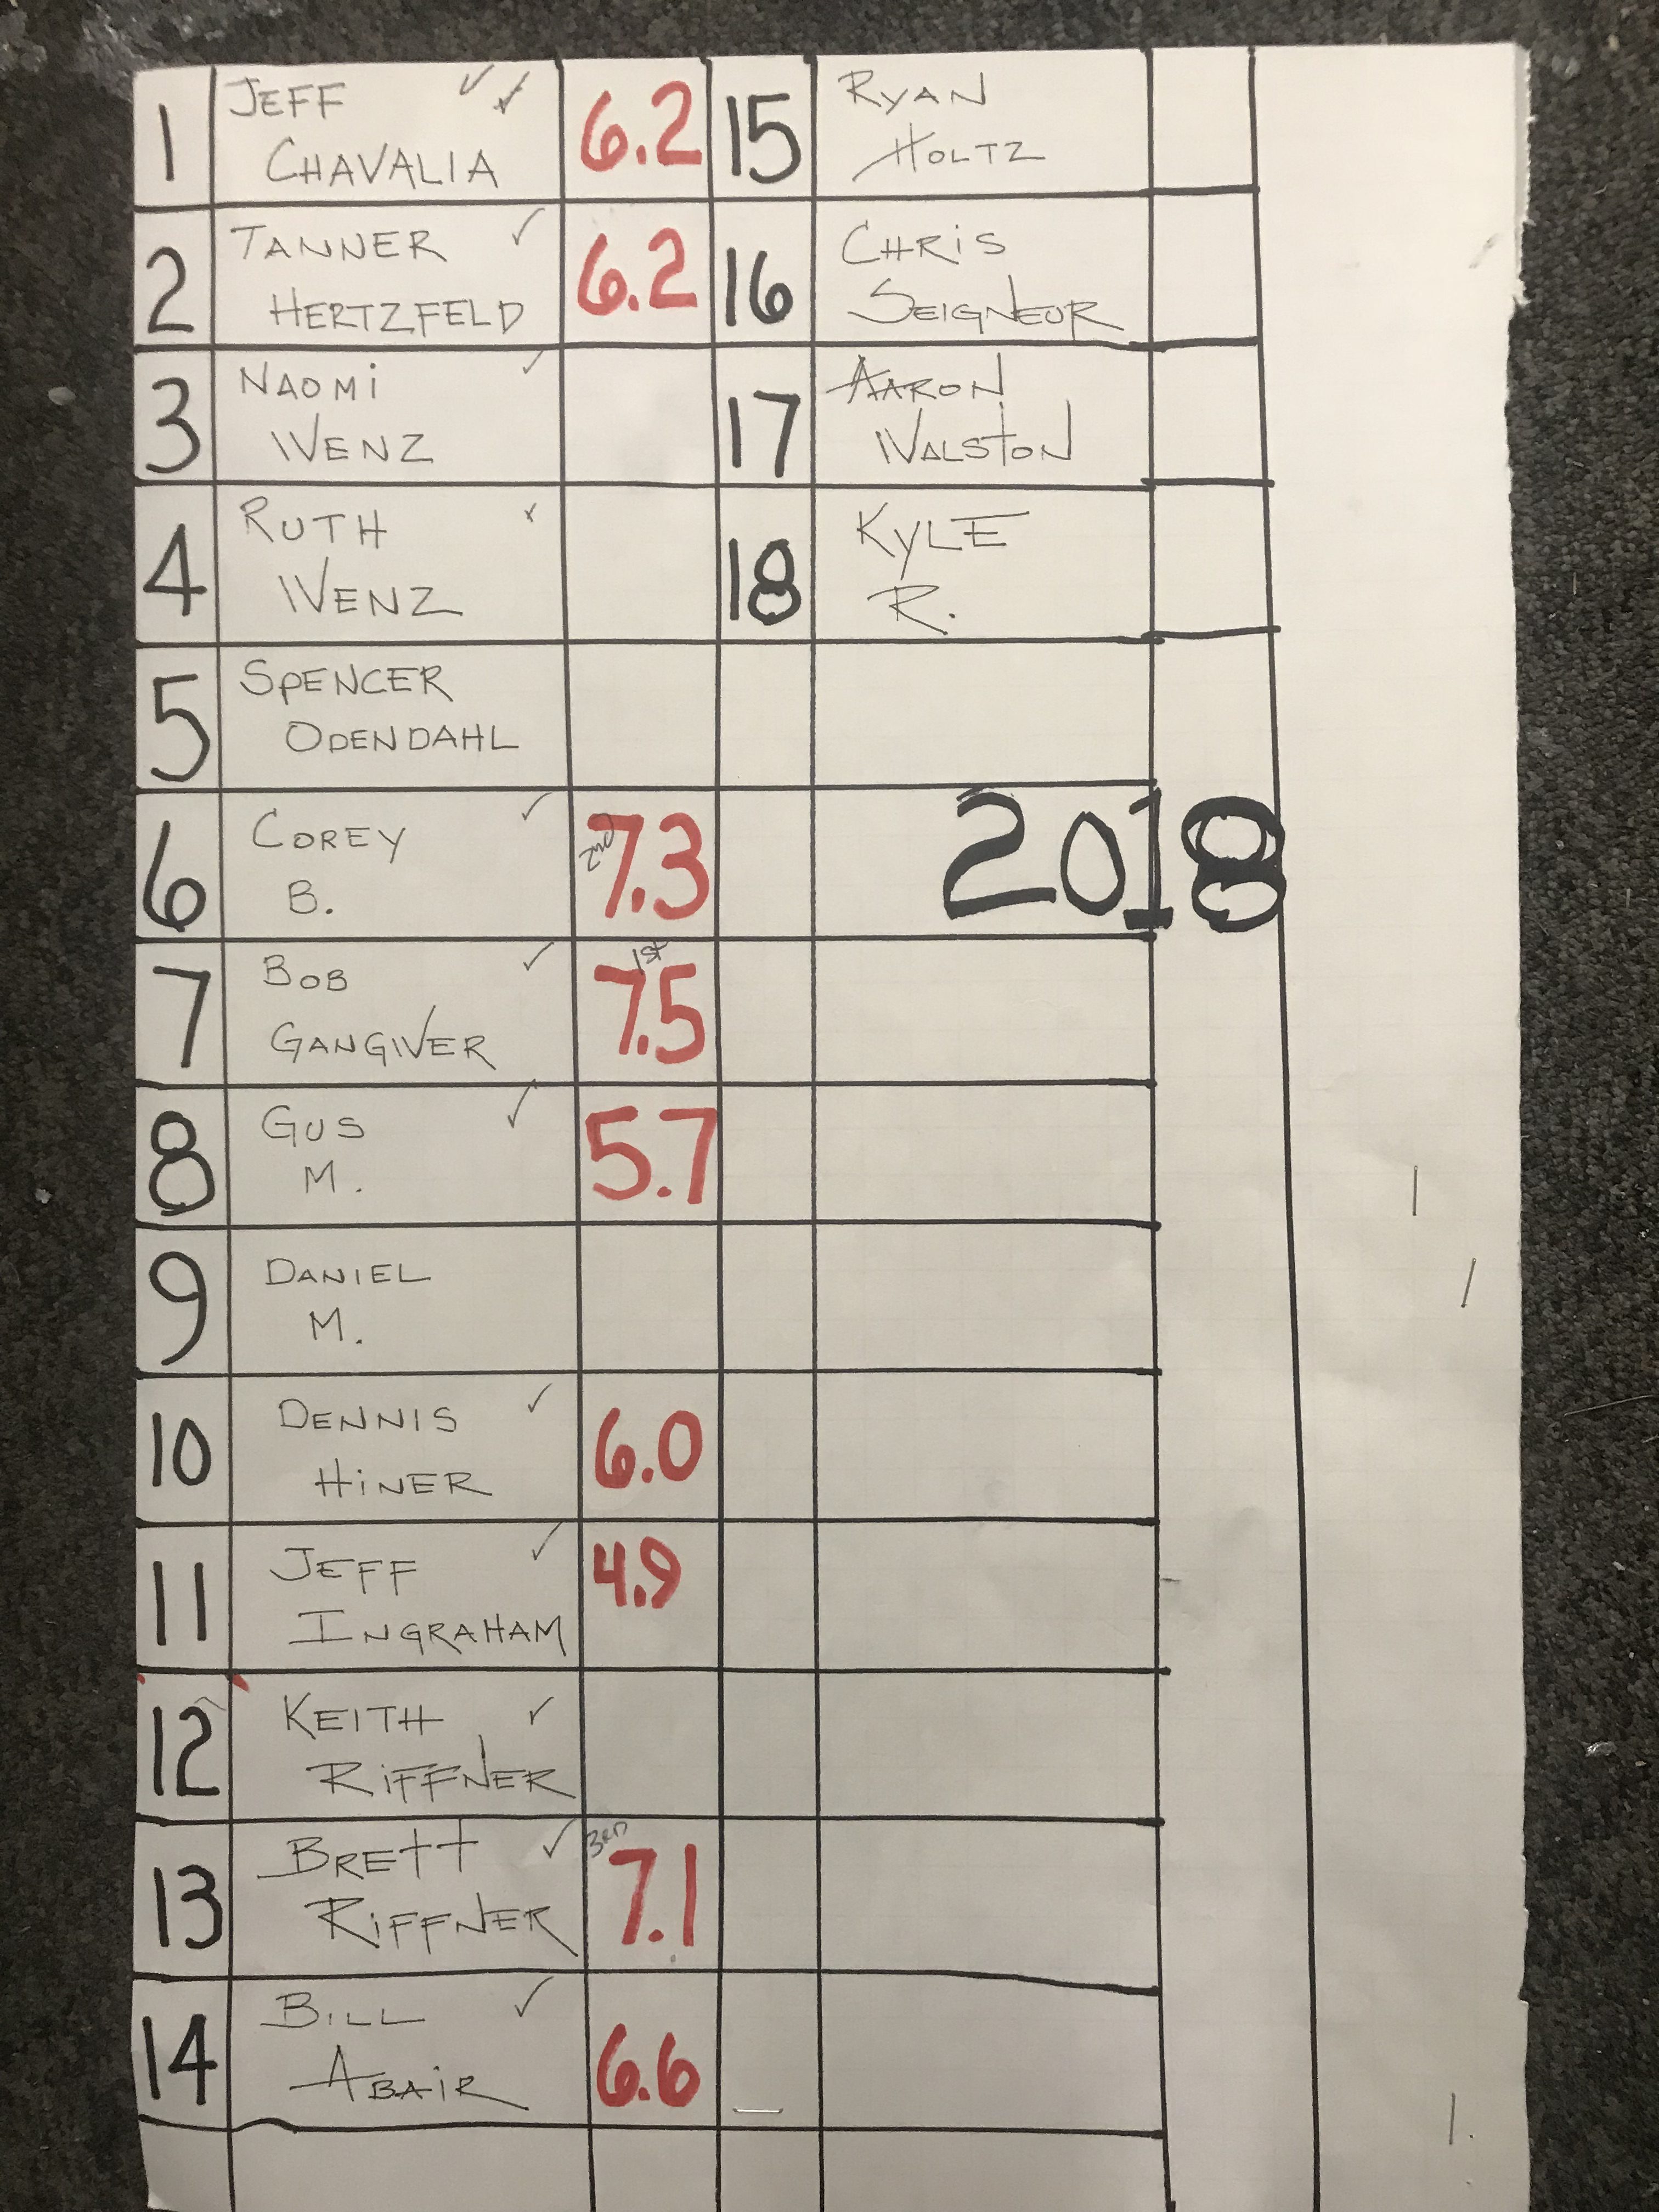 1
JEFF
CHAVALIA
6.2
2
TANNER
HERTZFELD
6.2
3
NAOMi
WENZ
4
RUTH
WENZ
5
SPENCER
ODENDAHL
6
COREY
B.
2nd
7.3
7
BOB
GANGIVER
1st
7.5
8
GUS
M.
5.7
9
DANIEL
M.
10
DENNIS
HiNER
6.0
11
JEFF
INGRAHAM
4.9
12
KEITH
RiFFNER
13
BRETT
RiFFNER
3RD
7.1
14
BiLL
ABAiR
6.6
15
RYAN
HOLTZ
16
CHRiS
SEIGNEUR
17
AARON
WALSTON
18
KYLE
R.
2018